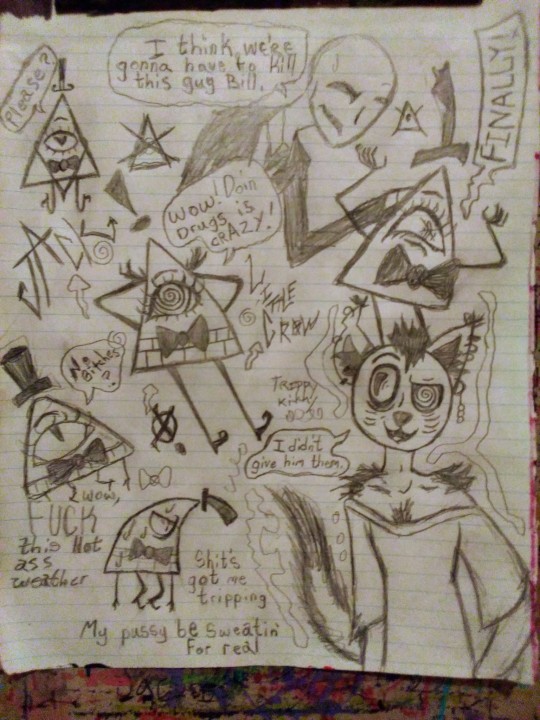 Please?
I think we're
gonna have to kill
this gug Bill.
FINALLY!
WOW! Doin
Drugs is
CRAZY!
LITTLE
CROW
No
Bitches
?
Trappy
Kitty
I didn't
give him them.
Wow,
FUCK
this Hot
ass
weather
Shit's
got me
tripping
My pussy be sweatin'
for real